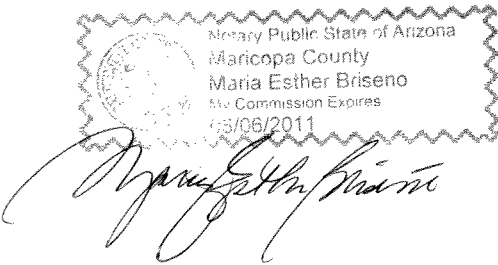 Notary Public State of Arizona
Maricopa County
Maria Esther Briseno
My Commission Expires
05/06/2011
Maria Esther Briseno